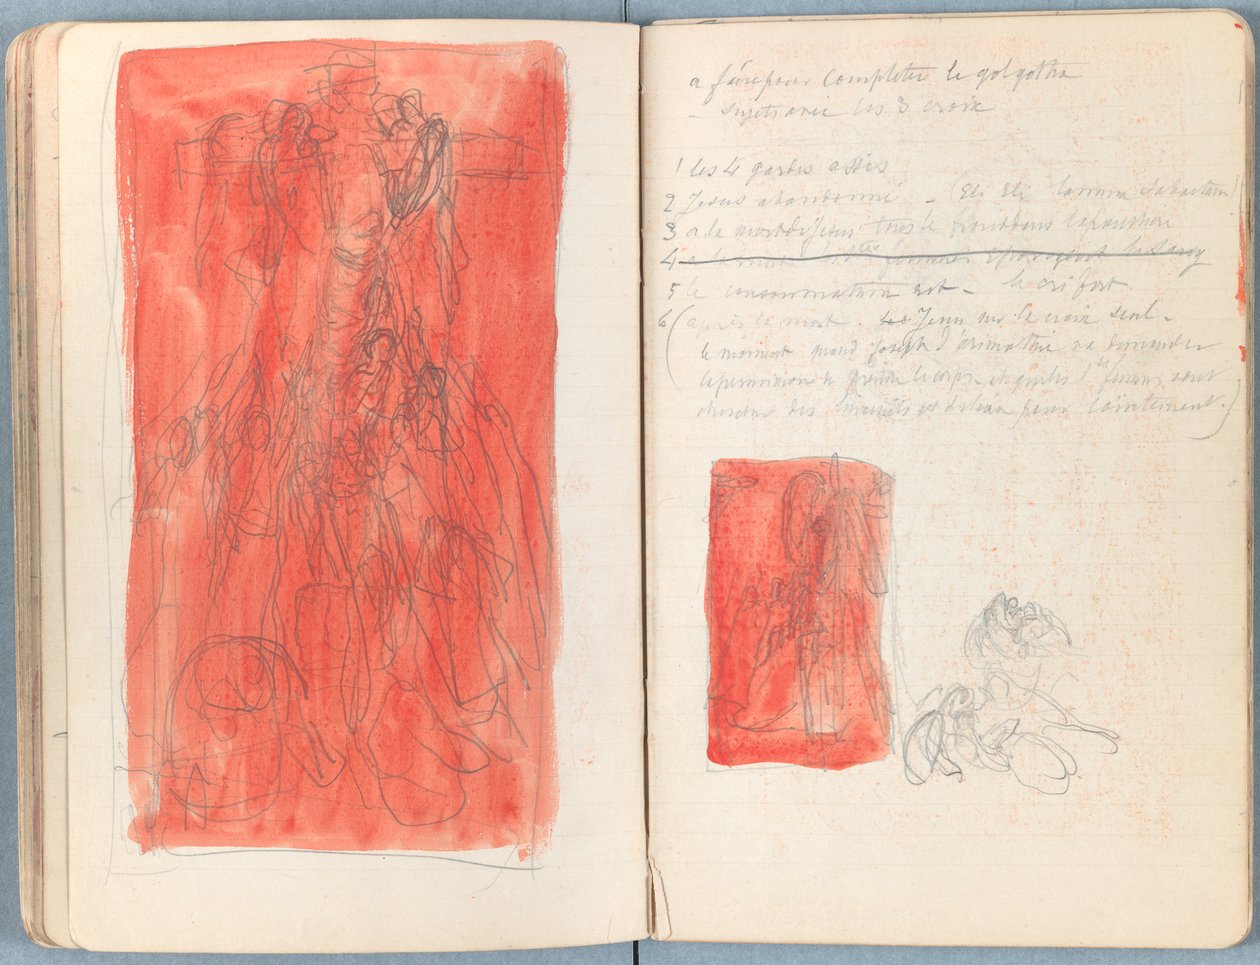 a faire pour completer le golgotha
- sujets avec les 3 croix
1 les 4 gardes assis
2 Jesus abandonné - (Eli Eli lamma Sabactani)
3 a la mort de Jesus tous le
4 a la mort les femmes le sang
5 le consommatum est - le cri fort
6 (après la mort. Jesus sur la croix seul -
le moment quand Joseph d'arimathie va demander
la permission de prendre le corps et que les femmes vont
chercher des et pour